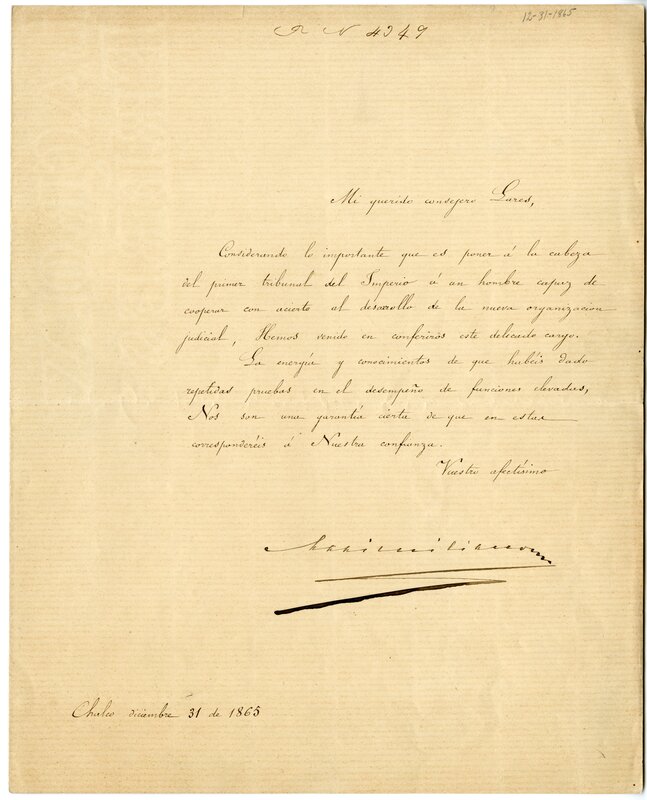 12-31-1865
R N 4349
Mi querido consejero Lares,
Considerando lo importante que es poner á la cabeza
del primer tribunal del Imperio á un hombre capaz de
cooperar con acierto al desarrollo de la nueva organizacion
judicial, Hemos venido en conferiros este delicado cargo.
La energía y conocimientos de que habéis dado
repetidas pruebas en el desempeño de funciones elevadas,
Nos son una garantía cierta de que en estas
corresponderéis á Nuestra confianza.
Vuestro afectísimo
Maximiliano
Chalco diciembre 31 de 1865